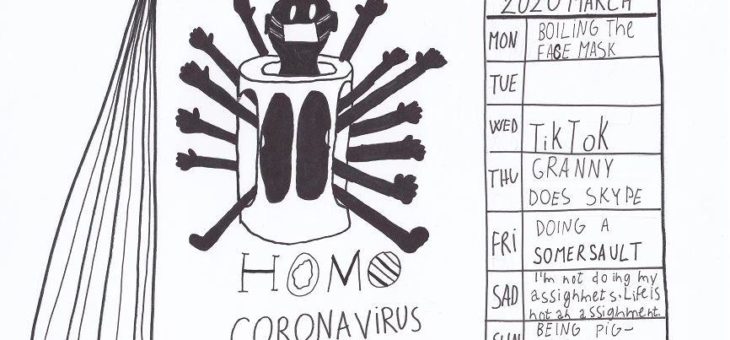 HOMO
CORONAVIRUS
2020 MARCH
MON
BOILING The
FACE MASK
TUE
WED
TikTok
THU
GRANNY
DOES SKYPE
FRI
DOING A
SOMERSAULT
SAD
I'm not doing my
assighmets. Life is
not ah assignment.
SUN
BEING PIG-